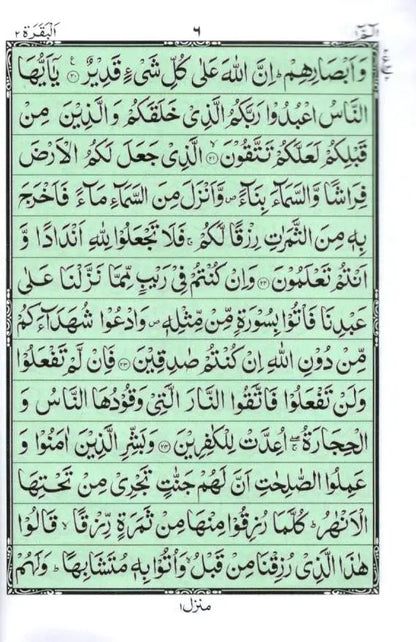 اَلْبَقَرَة ٢
٦
الٓمّٓ ١
وَاَبْصَارِهِمْ ؕ اِنَّ اللّٰهَ عَلٰى كُلِّ شَیْءٍ قَدِیْرٌ ۟۠ ﴿۲۰﴾ یٰۤاَیُّهَا
النَّاسُ اعْبُدُوْا رَبَّكُمُ الَّذِیْ خَلَقَكُمْ وَالَّذِیْنَ مِنْ
قَبْلِكُمْ لَعَلَّكُمْ تَتَّقُوْنَ ۙ﴿۲۱﴾ الَّذِیْ جَعَلَ لَكُمُ الْاَرْضَ
فِرَاشًا وَّالسَّمَآءَ بِنَآءً ۪ وَّاَنْزَلَ مِنَ السَّمَآءِ مَآءً فَاَخْرَجَ
بِهٖ مِنَ الثَّمَرٰتِ رِزْقًا لَّكُمْ ۚ فَلَا تَجْعَلُوْا لِلّٰهِ اَنْدَادًا وَّ
اَنْتُمْ تَعْلَمُوْنَ ﴿۲۲﴾ وَاِنْ كُنْتُمْ فِیْ رَیْبٍ مِّمَّا نَزَّلْنَا عَلٰى
عَبْدِنَا فَاْتُوْا بِسُوْرَةٍ مِّنْ مِّثْلِهٖ ۪ وَادْعُوْا شُهَدَآءَكُمْ
مِّنْ دُوْنِ اللّٰهِ اِنْ كُنْتُمْ صٰدِقِیْنَ ﴿۲۳﴾ فَاِنْ لَّمْ تَفْعَلُوْا
وَلَنْ تَفْعَلُوْا فَاتَّقُوا النَّارَ الَّتِیْ وَقُوْدُهَا النَّاسُ وَ
الْحِجَارَةُ ۖۚ اُعِدَّتْ لِلْكٰفِرِیْنَ ﴿۲۴﴾ وَبَشِّرِ الَّذِیْنَ اٰمَنُوْا وَ
عَمِلُوا الصّٰلِحٰتِ اَنَّ لَهُمْ جَنّٰتٍ تَجْرِیْ مِنْ تَحْتِهَا
الْاَنْهٰرُ ؕ كُلَّمَا رُزِقُوْا مِنْهَا مِنْ ثَمَرَةٍ رِّزْقًا ۙ قَالُوْا
هٰذَا الَّذِیْ رُزِقْنَا مِنْ قَبْلُ ۙ وَاُتُوْا بِهٖ مُتَشَابِهًا ؕ وَلَهُمْ
منزل ١